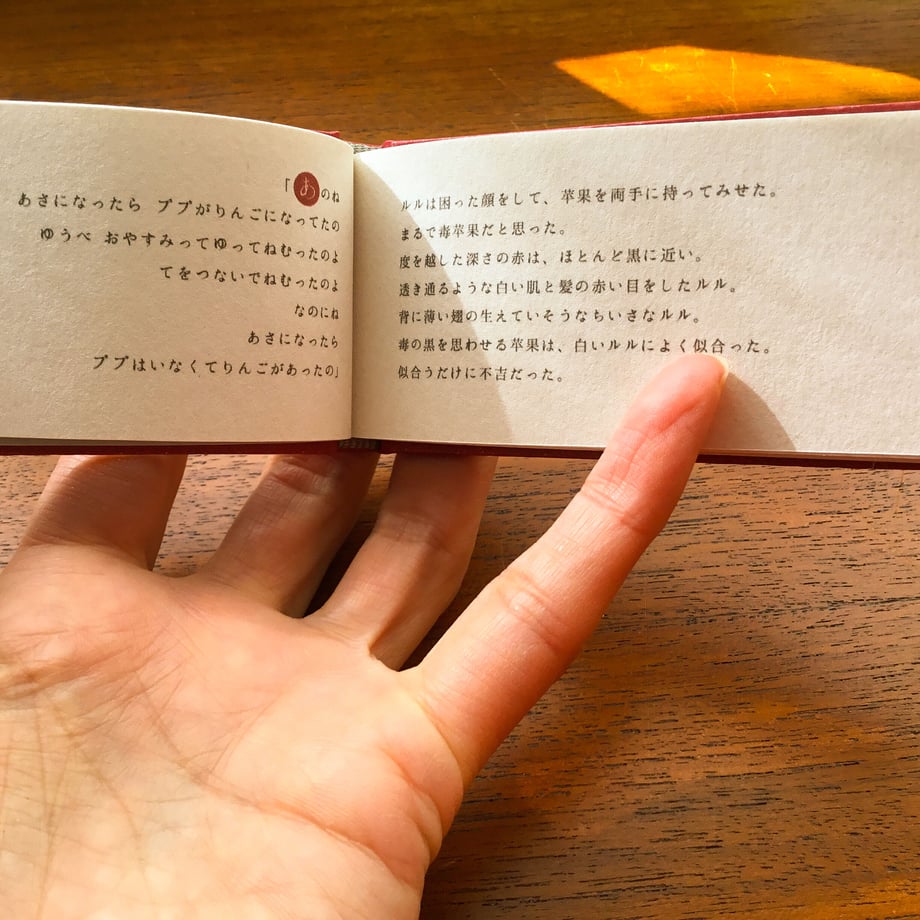 「あのね
あさになったら ププがりんごになってたの
ゆうべ おやすみってゆってねむったのよ
てをつないでねむったのよ
なのにね
あさになったら
ププはいなくてりんごがあったの」
ルルは困った顔をして、苹果を両手に持ってみせた。
まるで毒苹果だと思った。
度を越した深さの赤は、ほとんど黒に近い。
透き通るような白い肌と髪の赤い目をしたルル。
背に薄い翅の生えていそうなちいさなルル。
毒の黒を思わせる苹果は、白いルルによく似合った。
似合うだけに不吉だった。